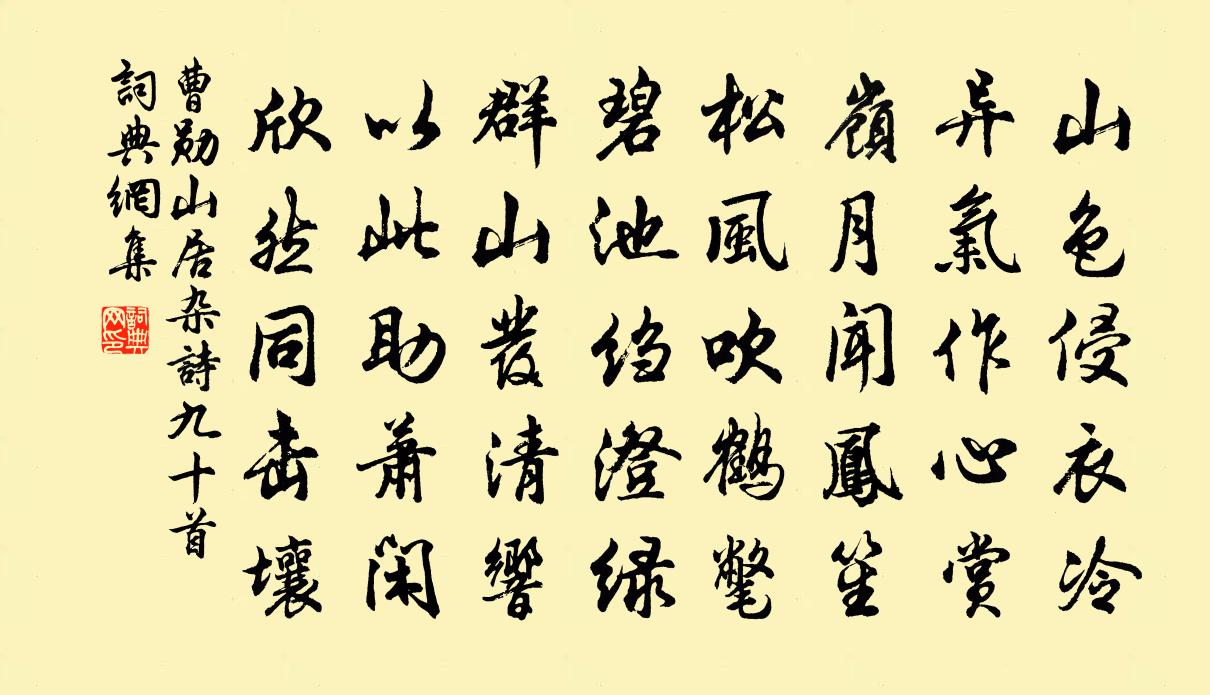 山色侵衣冷
异氣作心賞
嶺月闻鳳笙
松風吹鹤氅
碧池绉澄绿
群山發清響
以此助萧闲
欣然同击壤
曹勋山居杂詩九十首
詞典網集
詞典网印